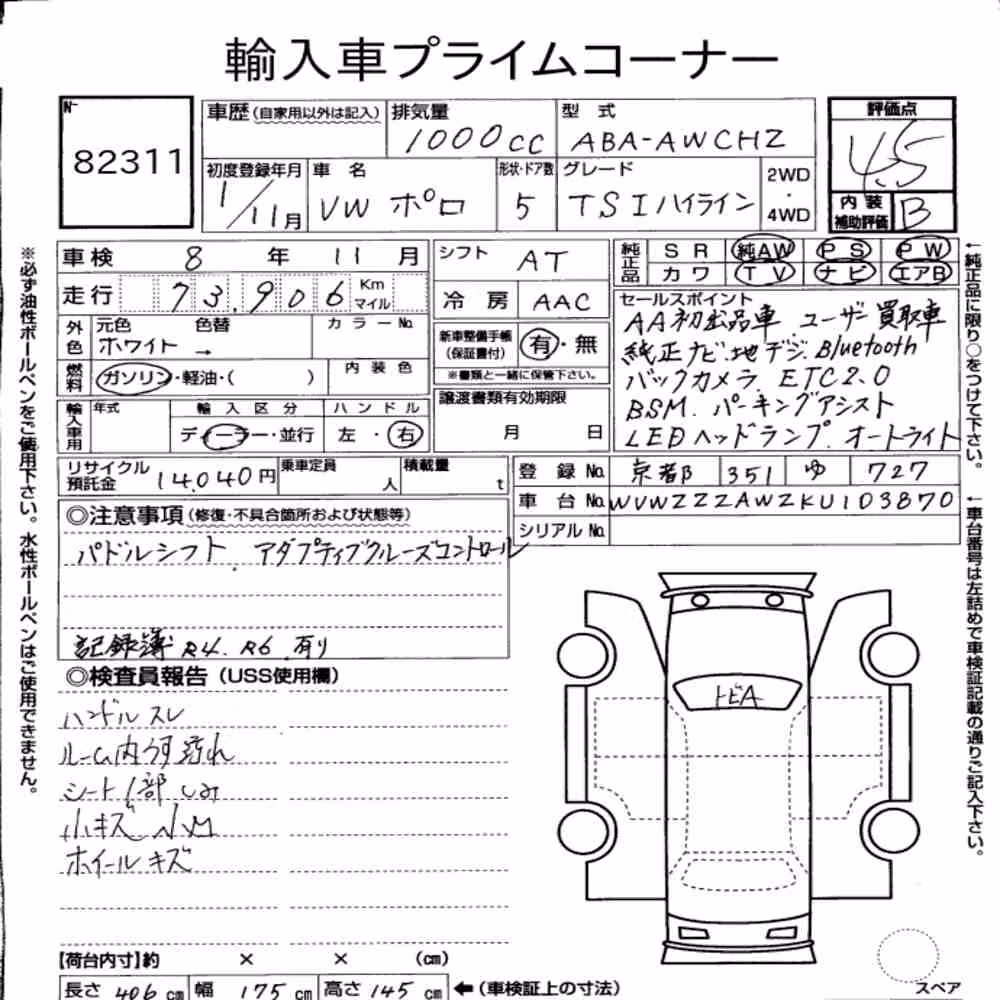 輸入車プライムコーナー
No
82311
車歴(自家用以外は記入)
排気量
1000cc
型 式
ABA-AWCHZ
評価点
4.5
初度登録年月
1/11月
車 名
VW ポロ
形状・ドア数
5
グレード
TSIハイライン
2WD
・
4WD
内 装
補助評価
B
車検 8 年 11 月
走行 73,906 Km
マイル
シフト AT
冷 房 AAC
純正品
SR 純AW PS PW
カワ TV ナビ エアB
セールスポイント
AA初出品車 ユーザー買取車
純正ナビ.地デジ.Bluetooth
バックカメラ ETC2.0
BSM. パーキングアシスト
LEDヘッドランプ.オートライト
外色
元色 色替
ホワイト →
カラーNo.
新車整備手帳
(保証書付)
有・無
※書類と一緒に保管下さい。
燃料
ガソリン・軽油・( )
内 装 色
譲渡書類有効期限
月 日
輸入車用
年式
輸 入 区 分
ディーラー・並行
ハ ン ド ル
左 ・ 右
リサイクル
預託金
14,040円
乗車定員
人
積載量
t
登 録 No. 京都 351 ゆ 727
車 台 No. WVWZZZAWZKU103870
シリアル No.
◎注意事項(修復・不具合箇所および状態等)
パドルシフト. アダプティブクルーズコントロール
記録簿 R4. R6 有り
◎検査員報告(USS使用欄)
ハンドル スレ
ルーム内 汚れ
シート1部 しみ
小キズ 小凹
ホイール キズ
トビA
【荷台内寸】約 × × (cm)
長さ 406 cm 幅 175 cm 高さ 145 cm ←(車検証上の寸法)
スペア
※必ず油性ボールペンをご使用下さい。水性ボールペンはご使用できません。
←純正品に限り○をつけて下さい。
←車台番号は左詰めで車検証記載の通りご記入下さい。